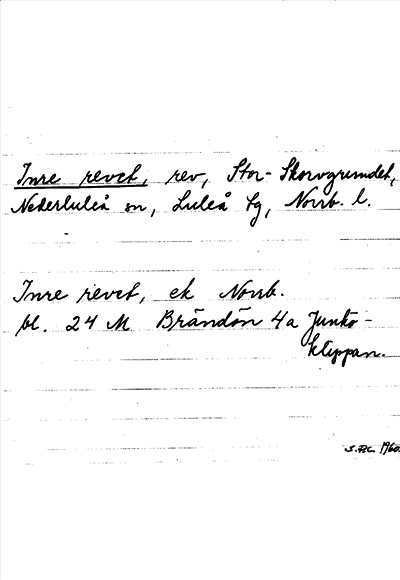 Inre revet, rev, Stor-Skorvgrundet,
Nederluleå sn, Luleå tg, Norrb. l.
Inre revet, ek Norrb.
bl. 24 M Brändön 4a Junkö-
klippan.
1960.